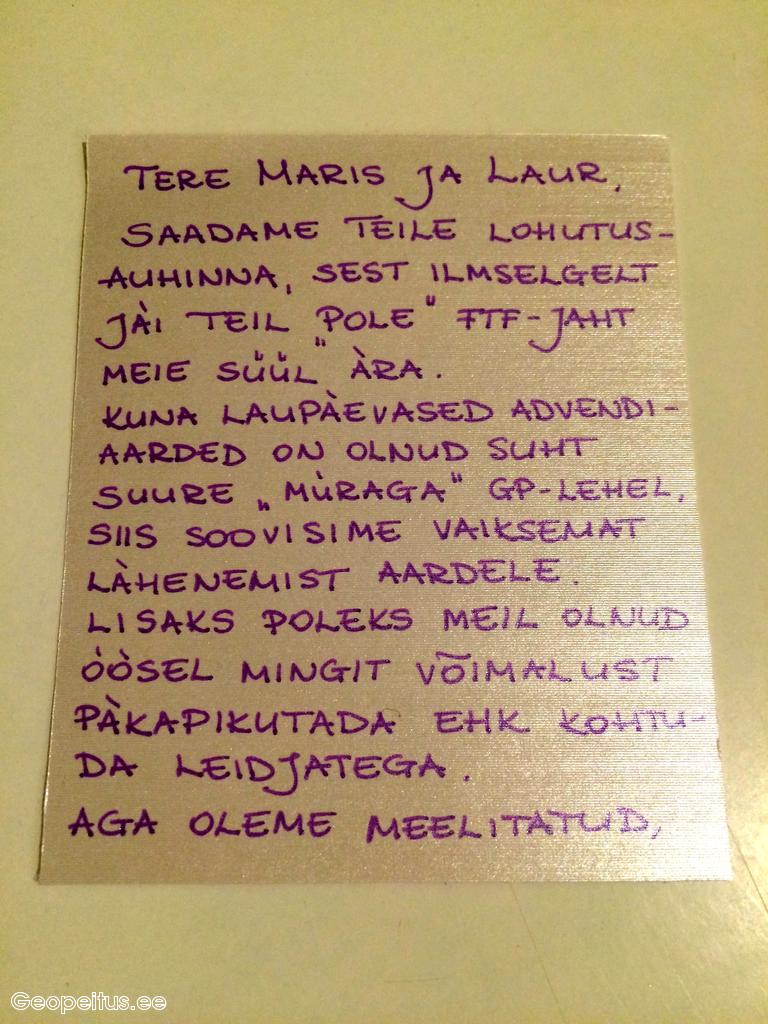 TERE MARIS JA LAUR,
SAADAME TEILE LOHUTUS-
AUHINNA, SEST ILMSELGELT
JÄI TEIL "POLE" FTF-JAHT
MEIE "SÜÜL" ÄRA.
KUNA LAUPÄEVASED ADVENDI-
AARDED ON OLNUD SUHT
SUURE „MÜRAGA" GP-LEHEL,
SIIS SOOVISIME VAIKSEMAT
LÄHENEMIST AARDELE.
LISAKS POLEKS MEIL OLNUD
ÖÖSEL MINGIT VÕIMALUST
PÄKAPIKUTADA EHK KOHTU-
DA LEIDJATEGA.
AGA OLEME MEELITATUD,
Geopeitus.ee